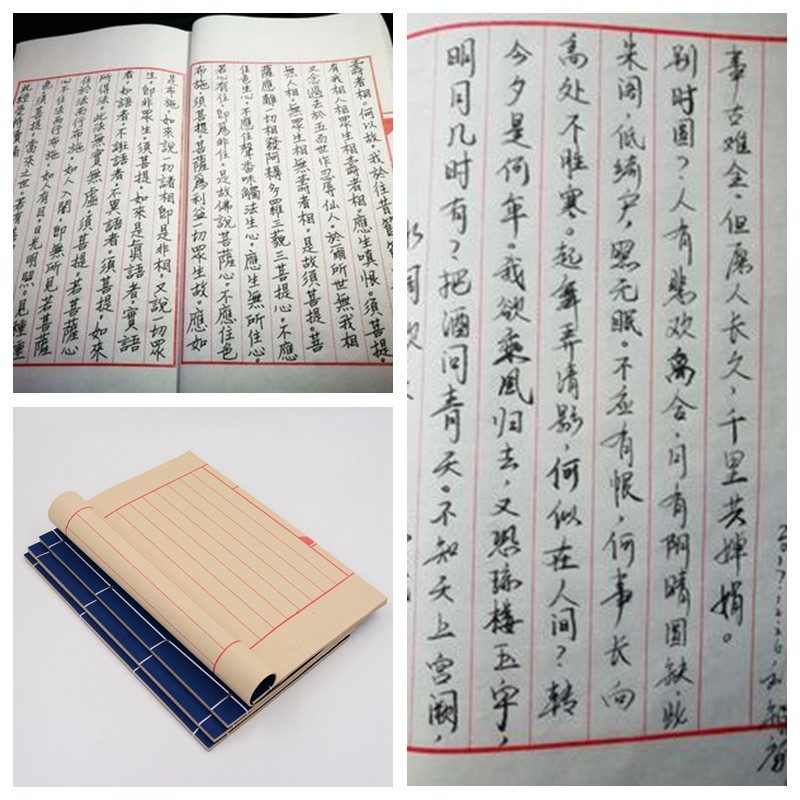 壽者相。何以故。我於往昔節節
有我相人相眾生相壽者相。應生嗔恨。須菩提。
又念過去於五百世作忍辱仙人。於爾所世無我相
無人相。無眾生相。無壽者相。是故須菩提。菩
薩應離一切相發阿耨多羅三藐三菩提心。不應
住色生心。不應住聲香味觸法生心。應生無所住心。
若心有住。即為非住。是故佛說菩薩心。不應住色
布施。須菩提。菩薩為利益一切眾生故。應如
是布施。如來說一切諸相即是非相。又說一切眾
生。即非眾生。須菩提。如來是真語者。實語
者。如語者。不誑語者。不異語者。須菩提。如來
所得法。此法無實無虛。須菩提。若菩薩心
住於法而行布施。如人入闇。即無所見。若菩薩
心不住法而行布施。如人有目。日光明照。見種種
色。須菩提。當來之世。若有善
此經受持讀誦
明月几时有？把酒问青天。不知天上宫阙，
今夕是何年。我欲乘风归去，又恐琼楼玉宇，
高处不胜寒。起舞弄清影，何似在人间？转
朱阁，低绮户，照无眠。不应有恨，何事长向
别时圆？人有悲欢离合，月有阴晴圆缺，此
事古难全。但愿人长久，千里共婵娟。